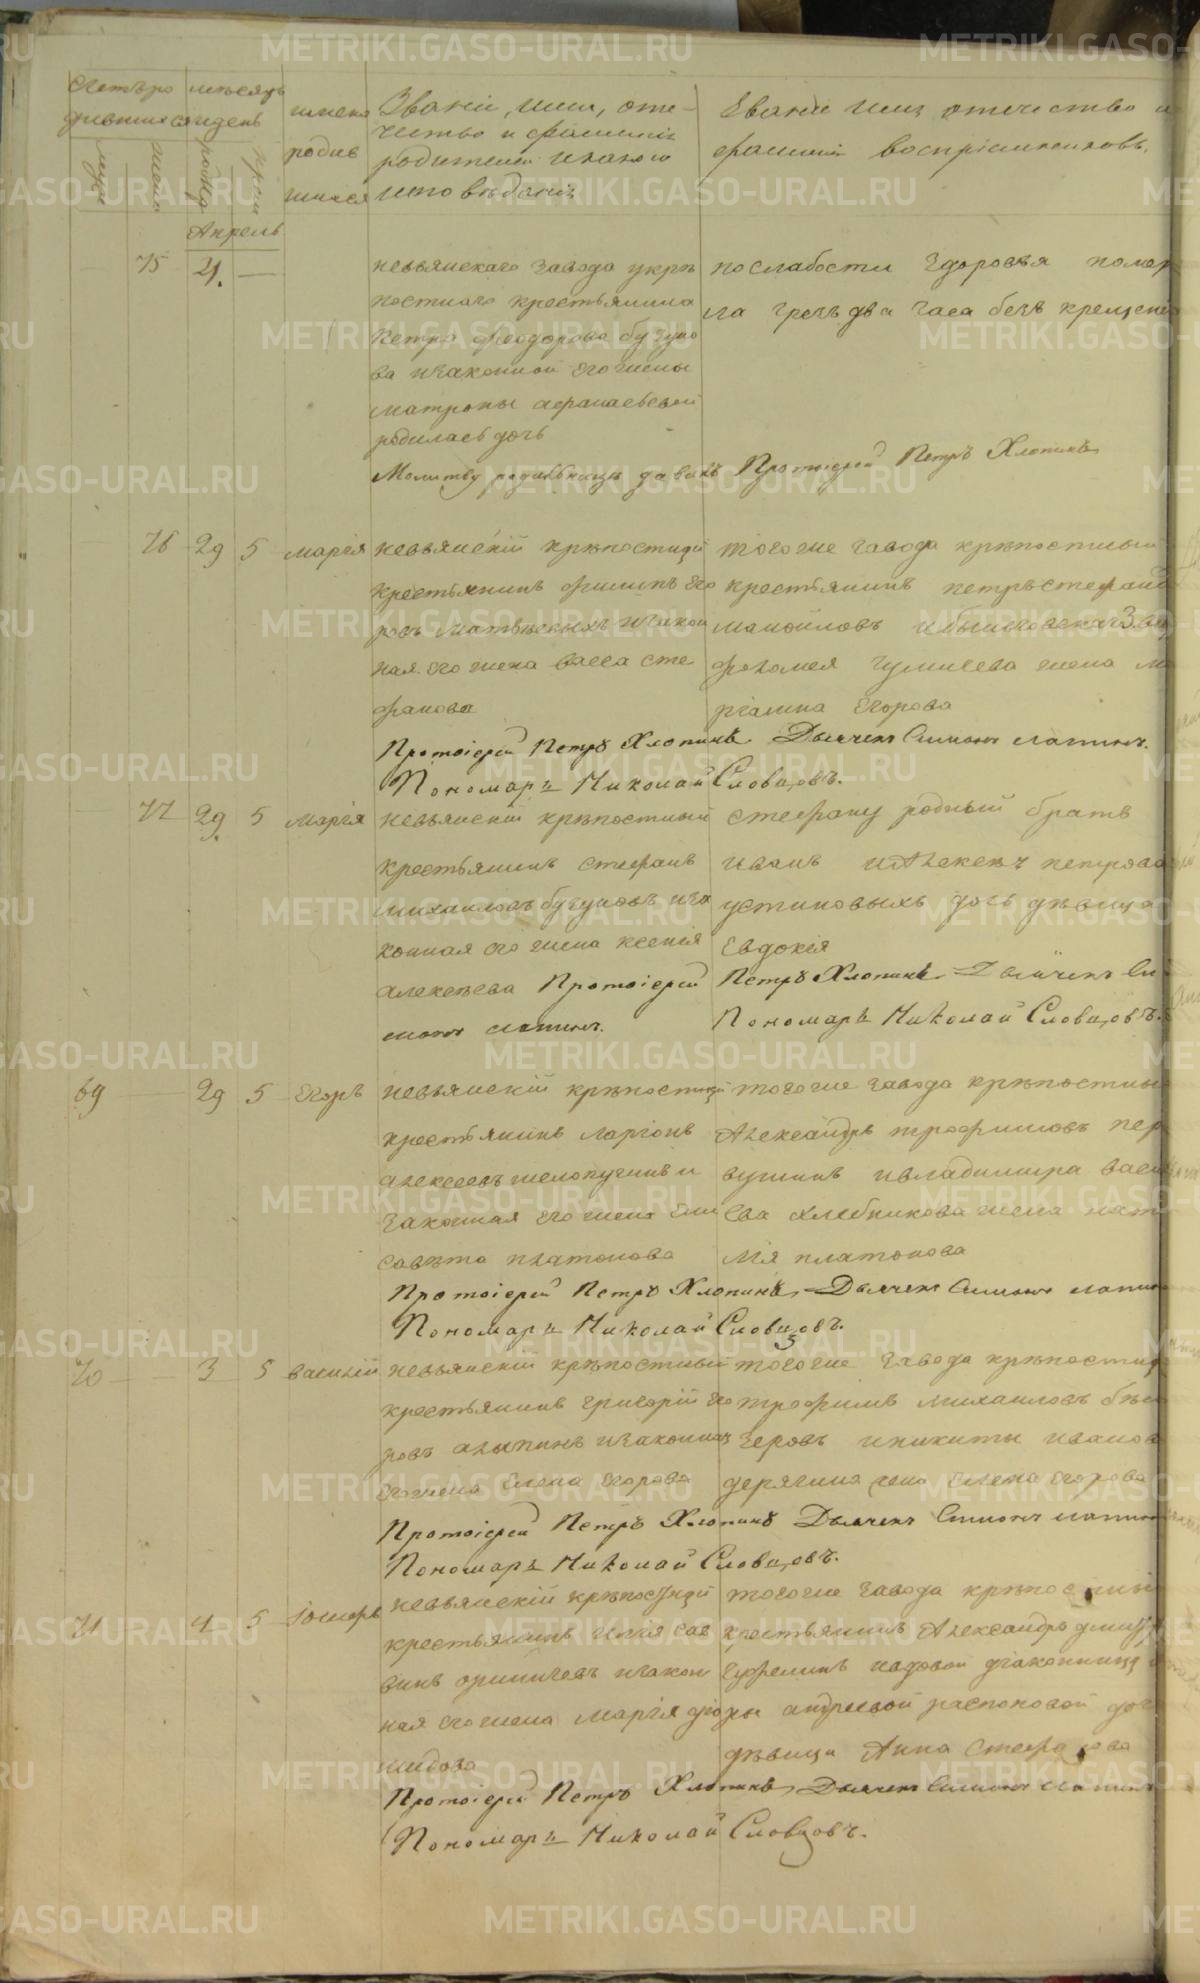 счетъ ро мѣсяцъ
дившихся и день
имена
родив
шихся
Званіе, имя, оте-
чество и фамилія
родителей и какого
исповѣданія
Званіе имя отечество и
фамилія воспріемниковъ.
Апрель
75 21.
невьянскаго завода укрѣ
постнаго крестьянина
Петра Феодорова бузуно
ва изаконной его жены
матроны афанасьевой
родилась дочь
послабости здоровья помер
ла чрезъ два часа безъ крещенія
Молитву родильницѣ давалъ Протоіерей Петръ Хлопинъ
76 29 5 марія
невьянскій крѣпостный
крестьянинъ филипъ его
ровъ матвѣевыхъ изакон
ная его жена васса сте
фанова
тогоже завода крѣпостный
крестьянинъ петръ стефано
мамойловъ
жена
егорова
Протоіерей Петръ Хлопинъ Дьячекъ Симонъ лапинъ.
Пономарь Николай Словцовъ.
77 29 5 марія
невьянскій крѣпостный
крестьянинъ стефанъ
михаиловъ бузуновъ иза
конная его жена ксенія
алексѣева Протоіерей
стефану родный братъ
иванъ
устиновыхъ дочь дѣвица
Евдокія
Петръ Хлопинъ Дьячекъ Си
монъ лапинъ.
Пономарь Николай Словцовъ.
69 29 5 Егоръ
невьянскій крѣпостный
крестьянинъ ларіонъ
алексѣевъ шелопугинъ и
законная его жена ели
савѣта платонова
тогоже завода крѣпостны
Александръ трофимовъ пер
вушинъ ивладимира васи
ева хлебникова жена ната
лія платонова
Протоіерей Петръ Хлопинъ Дьячекъ Симонъ лапинъ
Пономарь Николай Словцовъ.
70 3 5 василій
невьянскій крѣпостный
крестьянинъ григорій его
ровъ изаконная
его жена Елена Егорова
тогоже завода крѣпостны
трофимъ михаиловъ бѣл
зеровъ иникиты иванов
дерягина жена елена егорова
Протоіерей Петръ Хлопинъ Дьячекъ Симонъ лапинъ
Пономарь Николай Словцовъ.
71 4 5
невьянскій крѣпостный
крестьянинъ илья сав
винъ изакон
ная его жена марія
мидова
тогоже завода крѣпостный
крестьянинъ Александръ
вдовой діаконицы
андреевой распоповой доч
дѣвица Анна стефанова
Протоіерей Петръ Хлопинъ Дьячекъ Симонъ лапинъ
Пономарь Николай Словцовъ.
METRIKI.GASO-URAL.RU